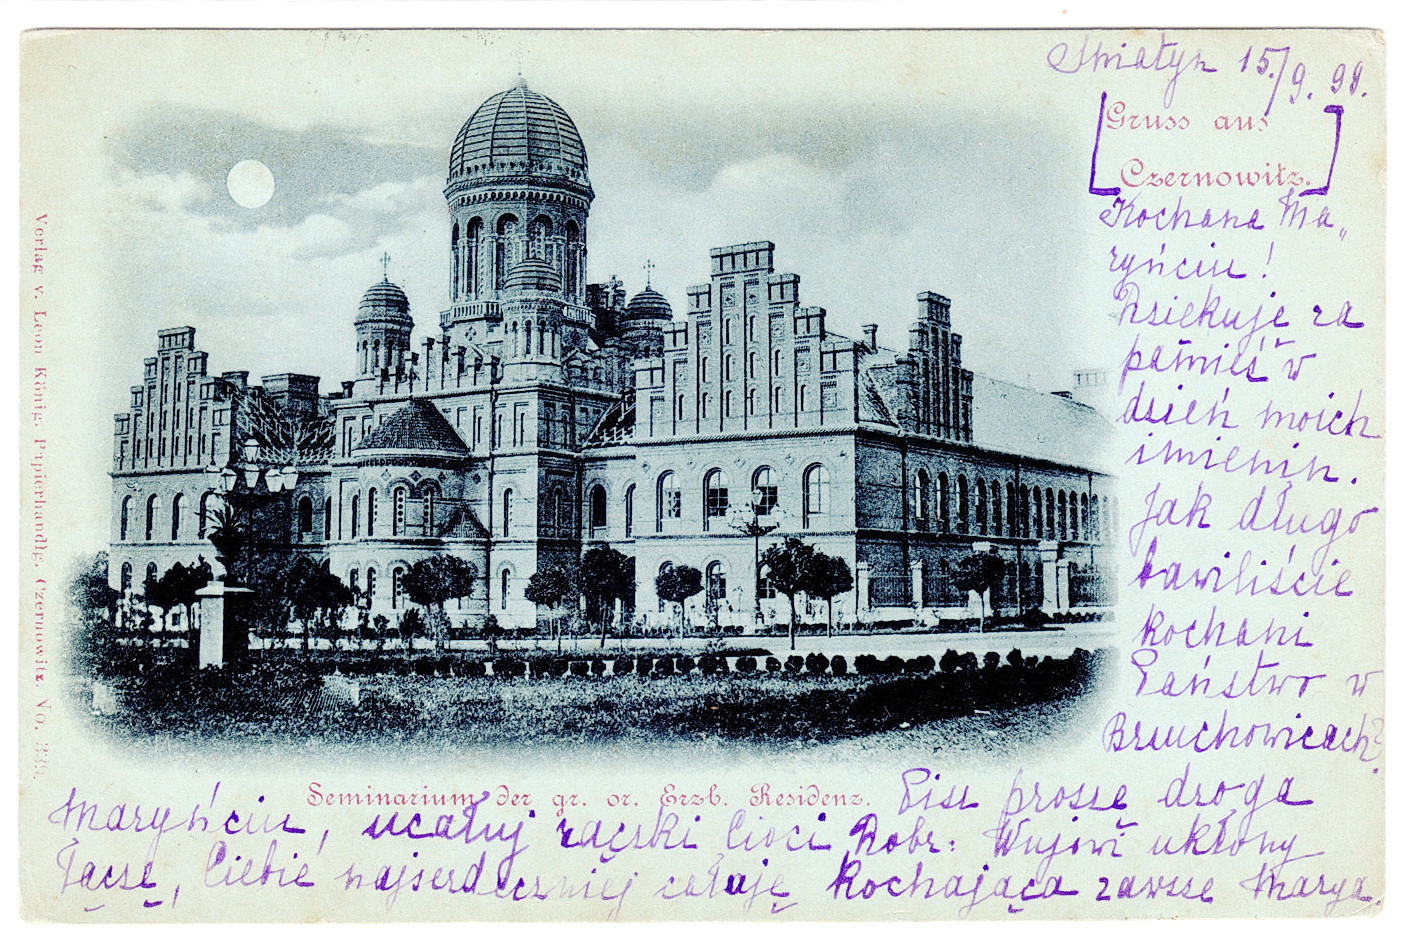 Śniatyn 15./9. 98.
Gruss aus
Czernowitz.
Kochana Ma„
ryńciu!
Dziękuję za
pamięć w
dzień moich
imienin.
Jak długo
bawiliście
kochani
Państwo w
Brzuchowicach?
Pisz proszę droga
Maryńciu, ucałuj rączki Cioci Robr: Wujowi ukłony
łączę, Ciebie najserdeczniej całuję kochająca zawsze Marya.
Seminarium der gr. or. Erzb. Residenz.
Verlag v. Leon König, Papierhandlg. Czernowitz. No.